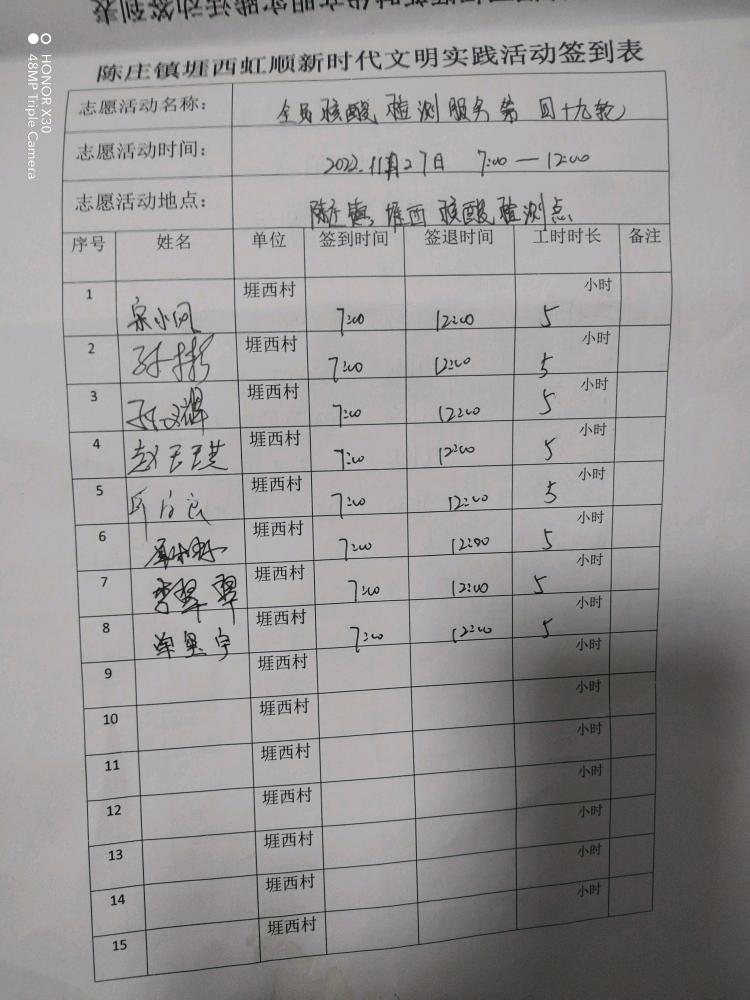 陈庄镇堐西虹顺新时代文明实践活动签到表
志愿活动名称： 全员核酸检测服务第四十九轮
志愿活动时间： 2022.11月27日 7:00—12:00
志愿活动地点： 陈庄镇堐西核酸检测点
序号 姓名 单位 签到时间 签退时间 工时时长 备注
1 宋小风 堐西村 7:00 12:00 5 小时
2 堐西村 7:00 12:00 5 小时
3 堐西村 7:00 12:00 5 小时
4 赵玉琪 堐西村 7:00 12:00 5 小时
5 堐西村 7:00 12:00 5 小时
6 堐西村 7:00 12:00 5 小时
7 李翠翠 堐西村 7:00 12:00 5 小时
8 单宝宇 堐西村 7:00 12:00 5 小时
9 堐西村 小时
10 堐西村 小时
11 堐西村 小时
12 堐西村 小时
13 堐西村 小时
14 堐西村 小时
15 堐西村
HONOR X30
48MP Triple Camera